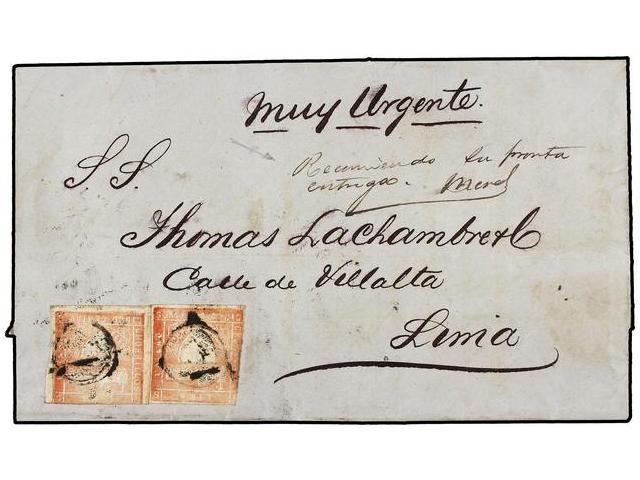 Muy Urgente.
Recomiendo su pronta
entrega.
S. S.
Thomas Lachambre & C
Calle de Villalta
Lima